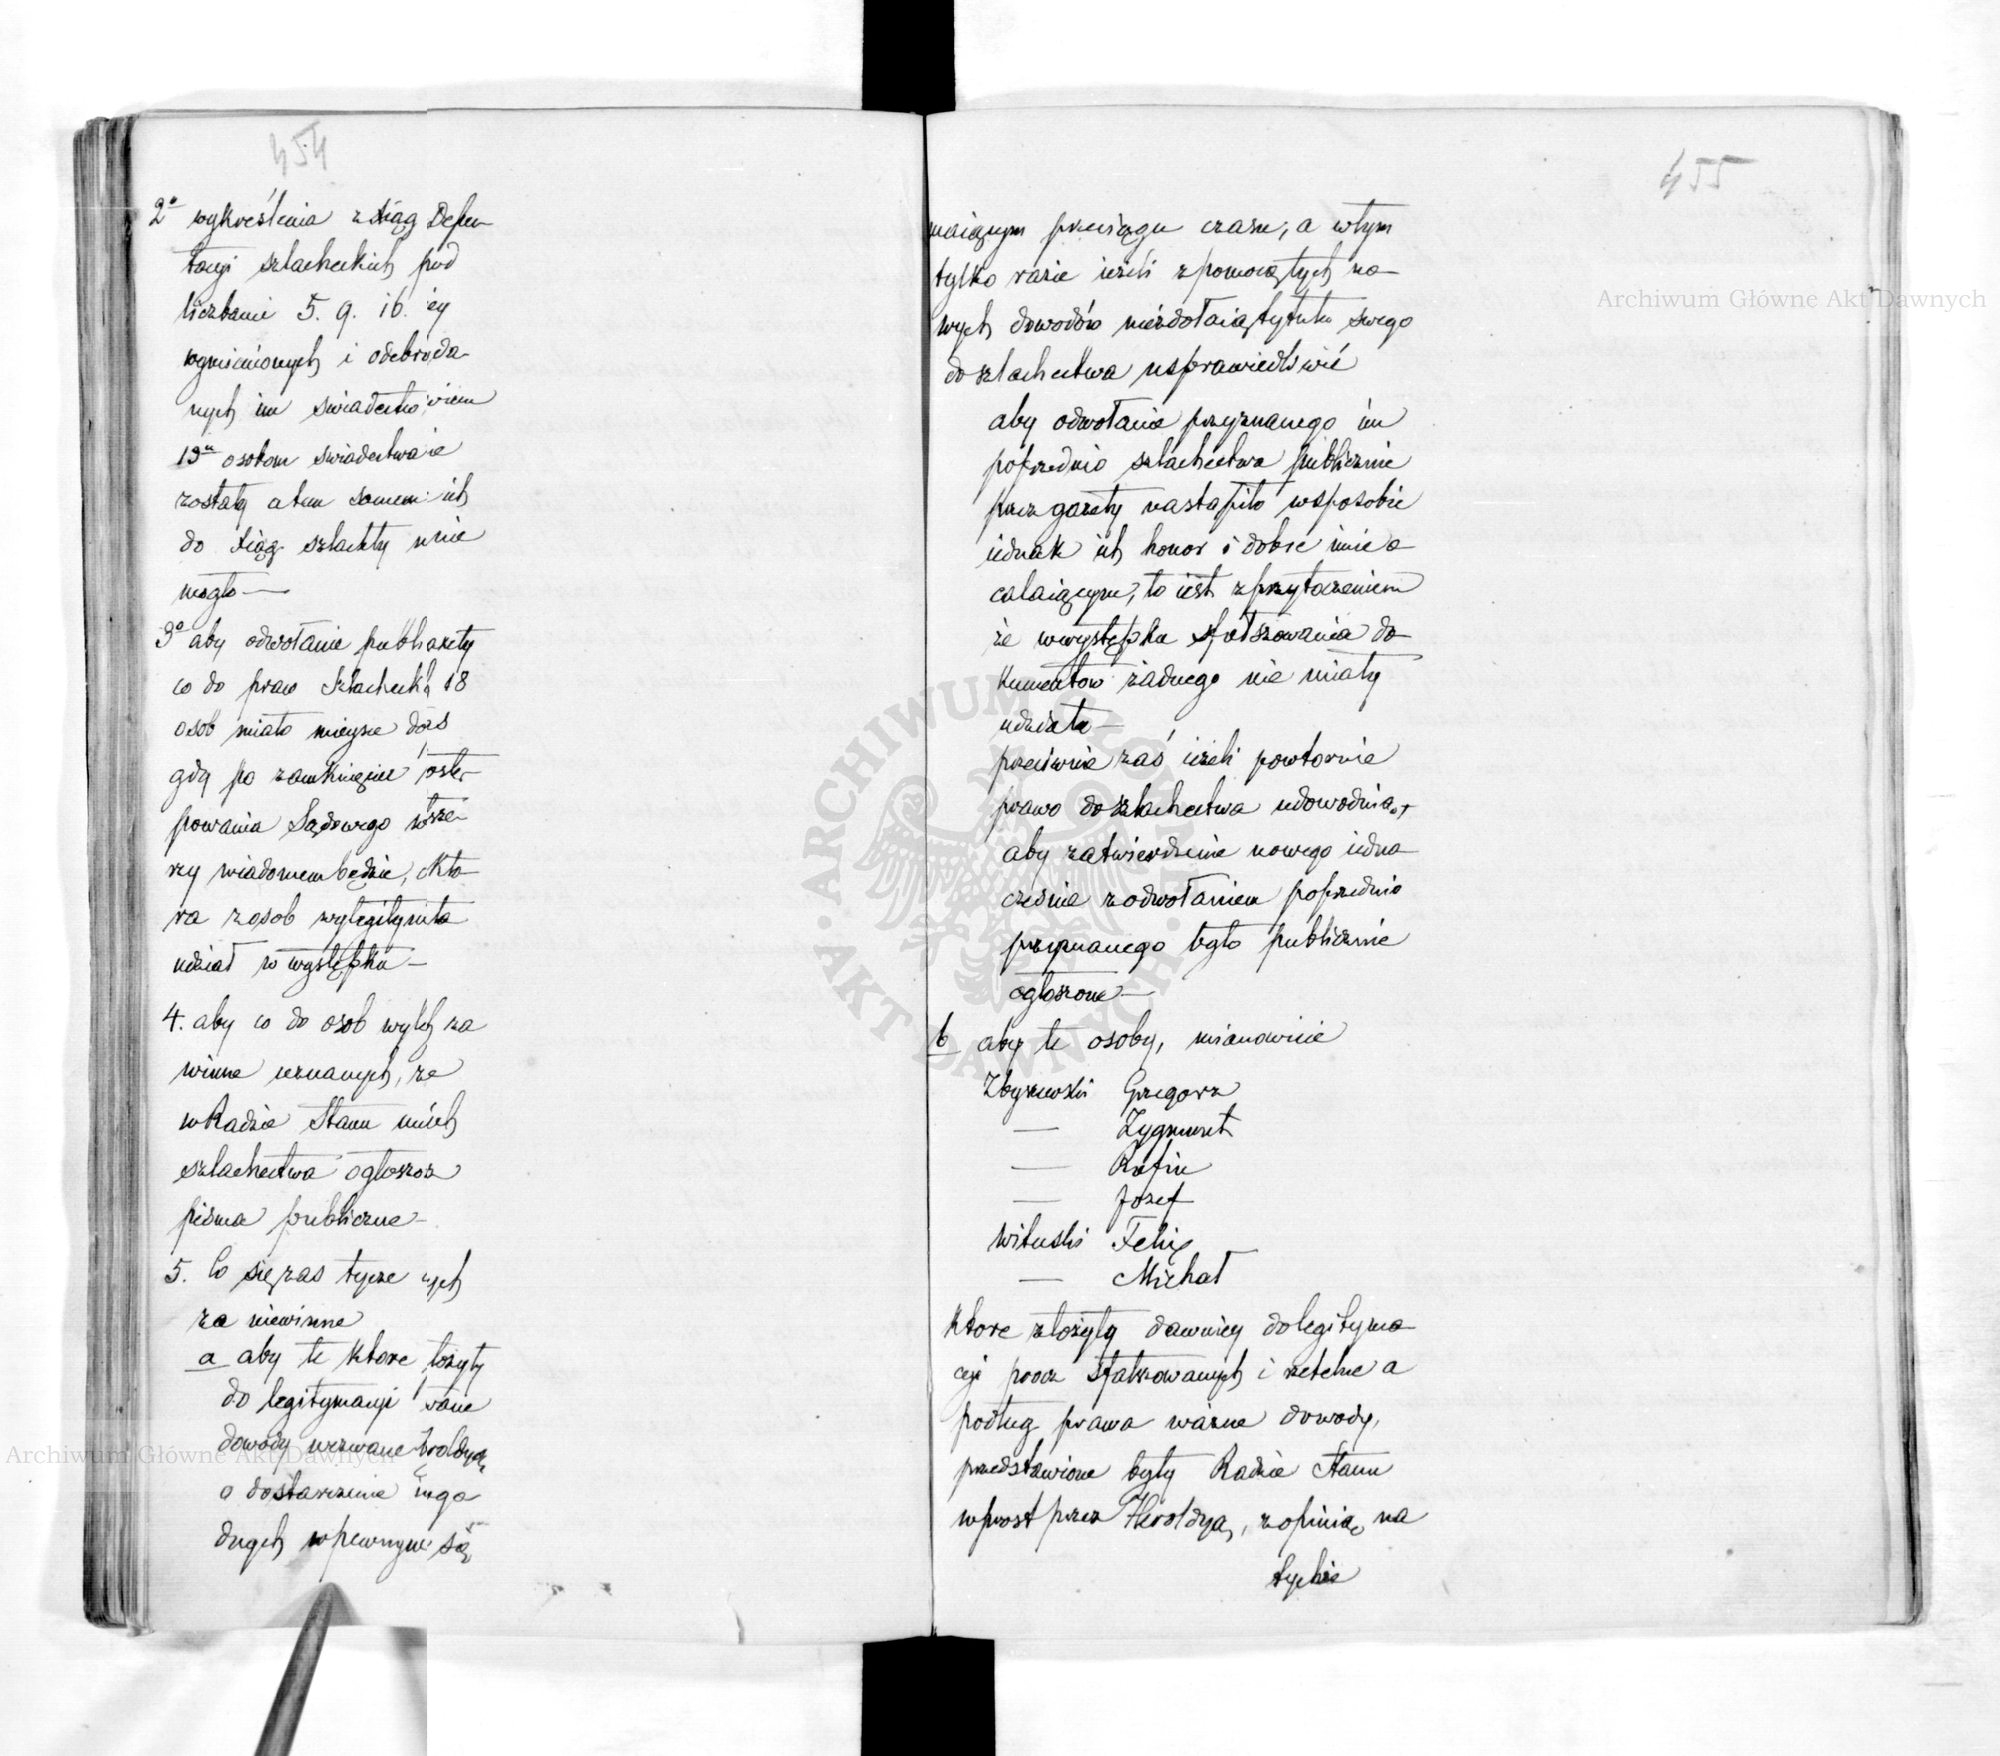 454
2o wykreślenia z Xiąg Depu
tacyi szlacheckich pod
liczbami 5. 9. 16. iey
wymienionych i odebrada
nych im swiadectw, wiem
osobom swiadectwa ie
zostały a tem samem ich
do Xiąg szlachty nie
mogło —
3o aby odwołanie publ: gazety
co do praw Szlacheck: 18
osob miało mieysce
gdy po zamknięciu
powania Sądowego
rzy wiadomem będzie, Kto
ra z osob wylegitym:ta
udział w występku —
4. aby co do osob wylch za
winne uznanych, ze
w Radzie Stanu
szlachectwa ogłosz
pisma publiczne —
5. Co się zas tycze tych
za niewinne
a aby te Ktore łożyły
do legitymacyi
dowody wezwane
o dostarczenie
dnych w pewnym
455
maiącym przeciągu czasu, a w tym
tylko razie ieżeli z pomocą tych no-
wych dowodów niezdołaią tytułu swego
do szlachectwa usprawiedliwić
aby odwołanie przyznanego im
poprzednio szlachectwa publicznie
przez gazety nastąpiło w sposobie
iednak ich honor i dobre imie o-
calaiącym, to iest z przytoczeniem
że w występku sfałszowania do-
kumentow żadnego nie miały
udziału —
przeciwnie zaś ieżeli powtornie
prawo do szlachectwa udowodnią,
aby zatwierdzenie nowego iedno-
cześnie z odwołaniem poprzednio
przyznanego było publicznie
ogłoszone —
b aby te osoby, mianowicie
Zbyszewski Grzegorz
— Zygmunt
— Rufin
— Jozef
Wituski Felix
— Michał
Ktore złożyły dawniey do legityma-
cyi procz sfałszowanych i rzetelne a
podług prawa ważne dowody,
przedstawione były Radzie Stanu
wprost przez Heroldyą, z opinią na
tychże
Archiwum Główne Akt Dawnych
Archiwum Główne Akt Dawnych
ARCHIWUM GŁÓWNE AKT DAWNYCH